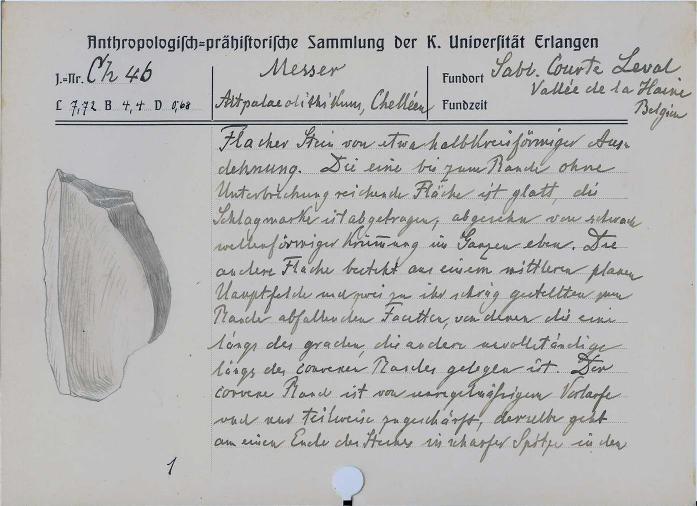 Anthropologisch=prähistorische Sammlung der K. Universität Erlangen
J.=Nr. Ch 46
Messer
Fundort Sabl. Courte Leval
Vallée de la Haine
Belgien
L 7,72 B 4,4 D 0,68
Altpalaeolithikum, Chelléen
Fundzeit
Flacher Stein von etwa halbkreisförmiger Aus-
dehnung. Die eine bis zum Rande ohne
Unterbrechung reichende Fläche ist glatt, die
Schlagmarke ist abgetragen, abgesehn von schwach
wellenförmiger Krümung im Ganzen eben. Die
andere Fläche besteht aus einem mittleren planen
Hauptfelde und zwei zu ihr schräg gestellten zum
Rande abfallenden Facetten, von denen die eine
längs des graden, die andere unvollständige
längs des convexen Randes gelegen ist. Der
convexe Rand ist von unregelmäßigem Verlaufe
und nur teilweise zugeschärft, derselbe geht
am einen Ende des Steines in scharfer Spitze in den
1